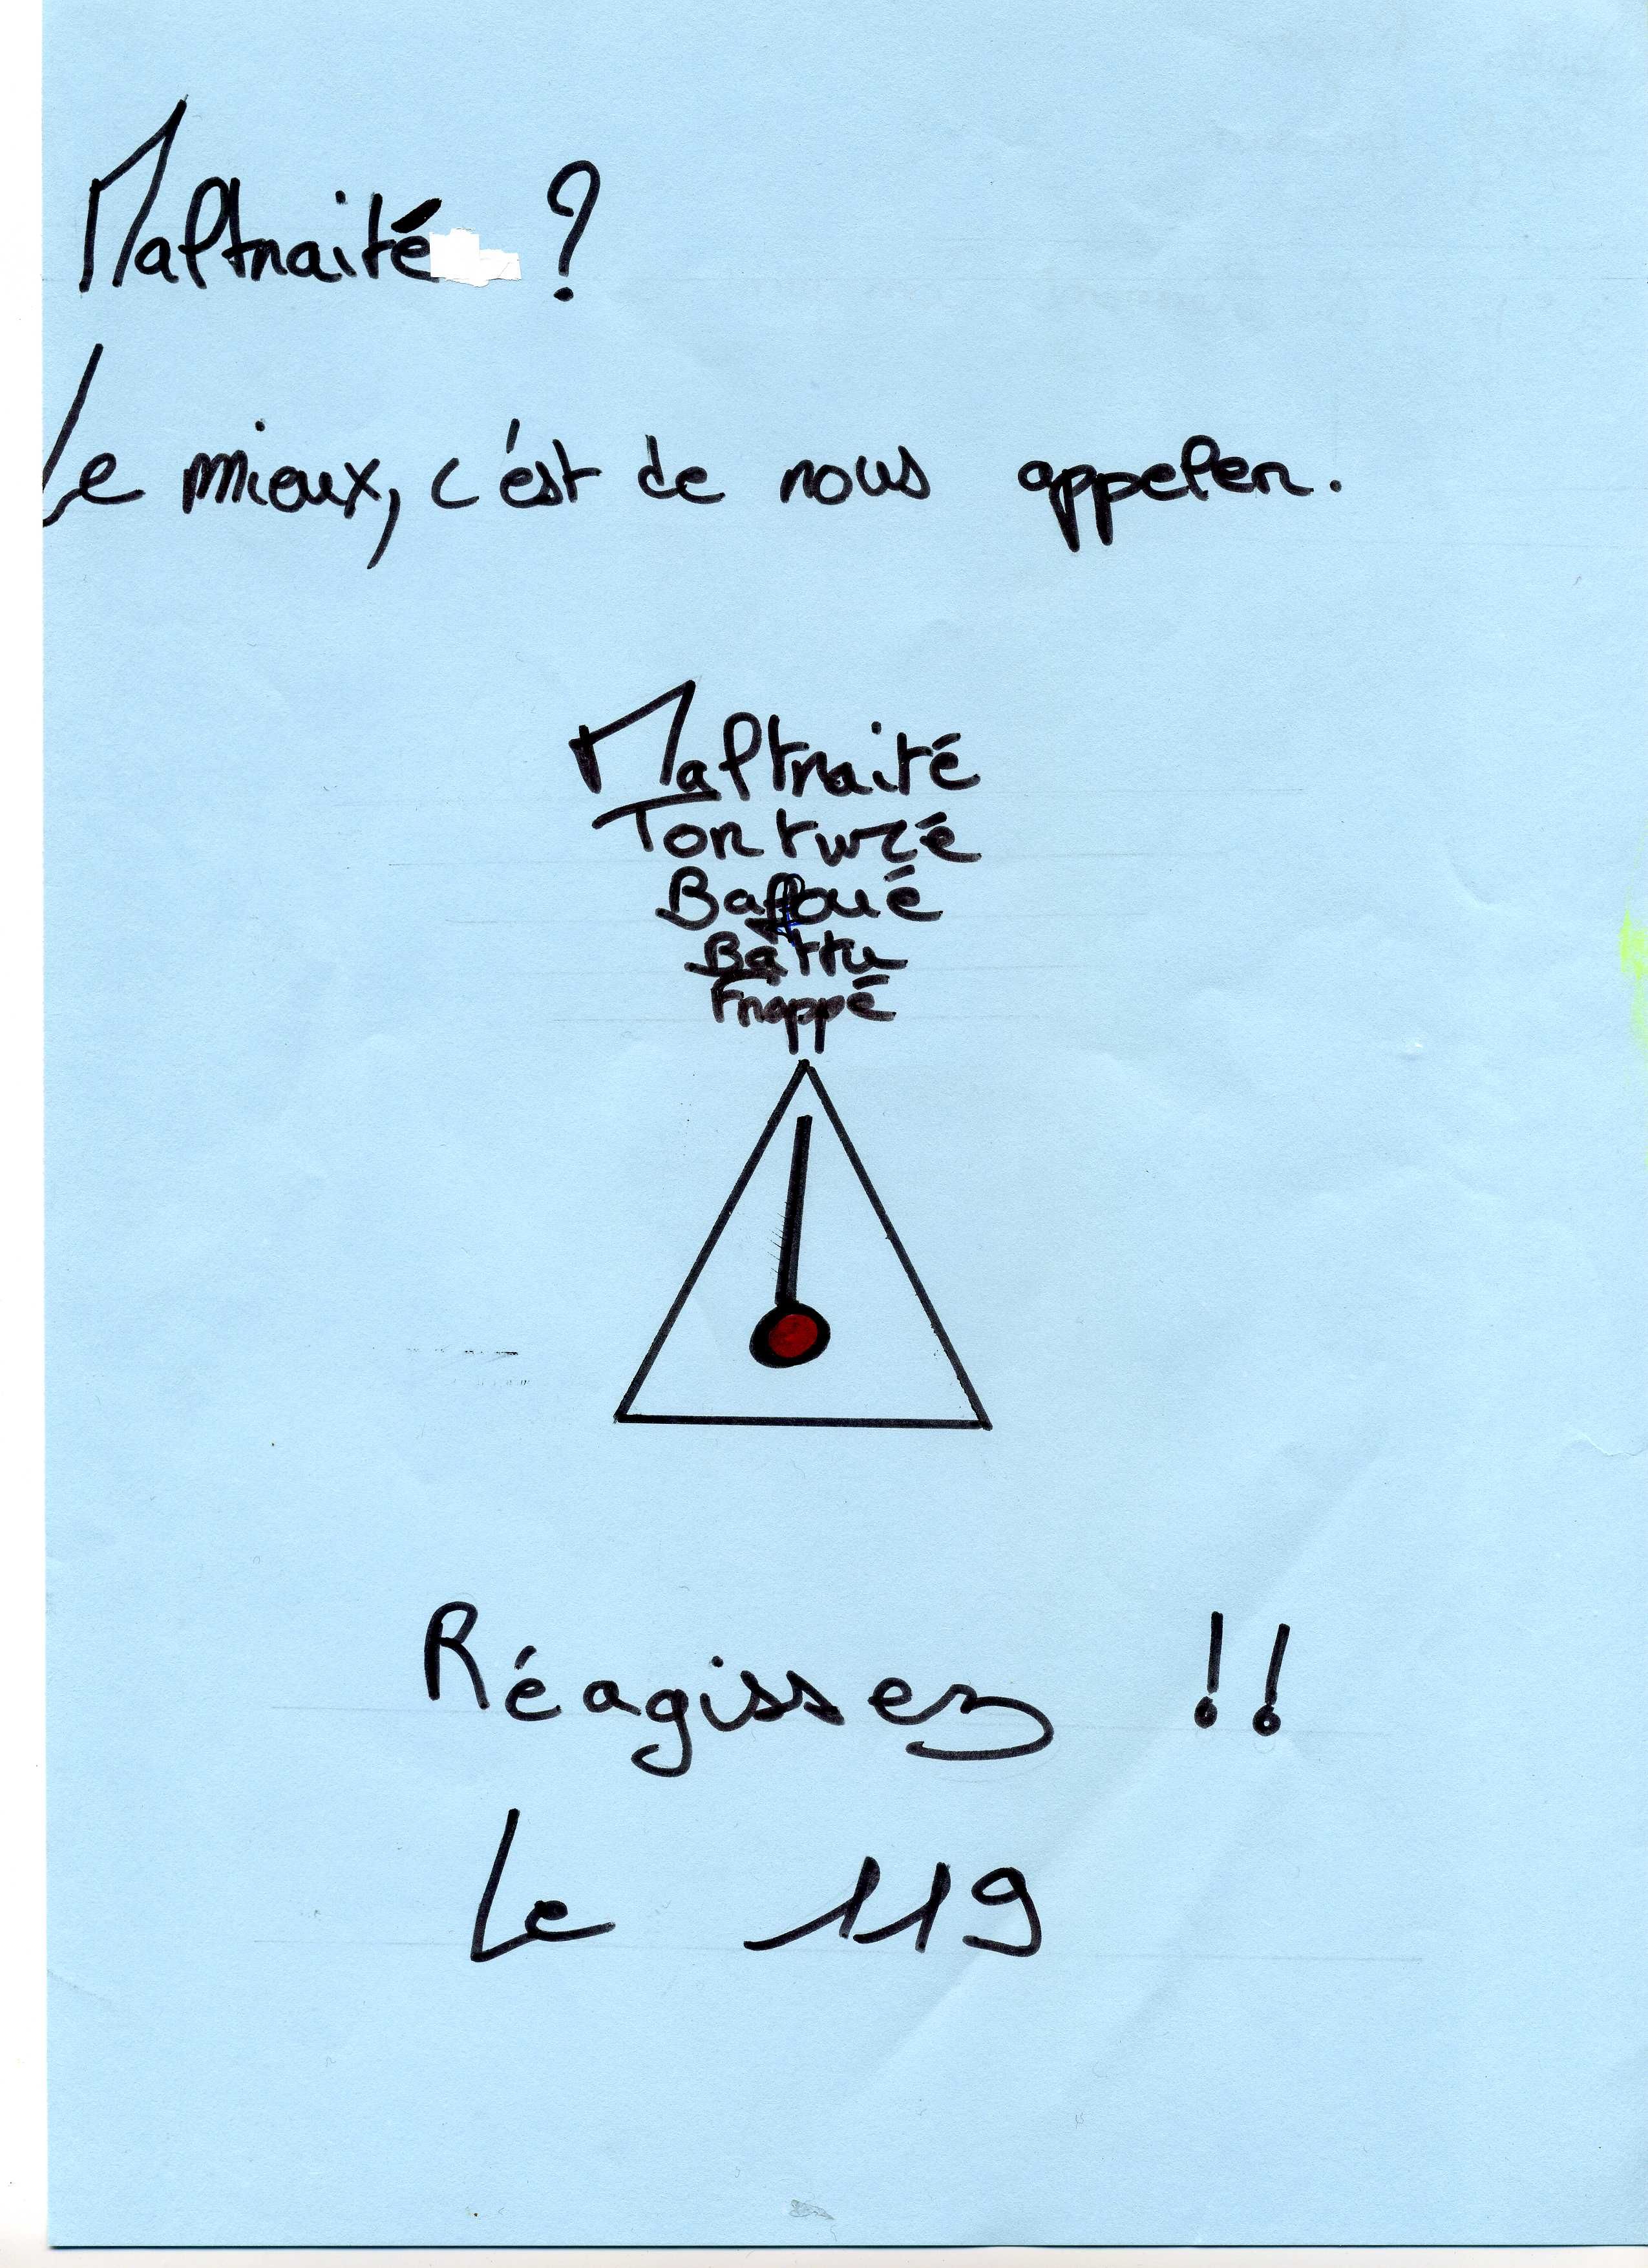 Maltraité ?
Le mieux, c'est de nous appeler.
Maltraité
Torturé
Baffoué
Battu
Frappé
Réagissez !!
Le 119